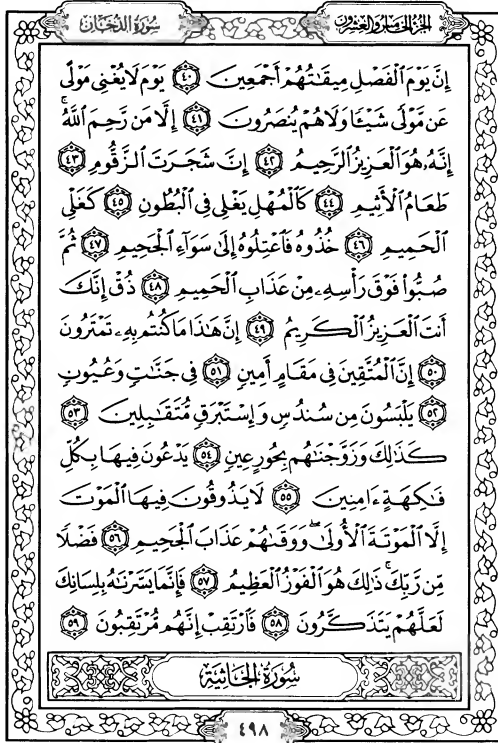 الجزء الخامس والعشرون
سورة الدخان
إِنَّ يَوْمَ ٱلْفَصْلِ مِيقَـٰتُهُمْ أَجْمَعِينَ ٤٠ يَوْمَ لَا يُغْنِى مَوْلًى
عَن مَّوْلًى شَيْـًٔا وَلَا هُمْ يُنصَرُونَ ٤١ إِلَّا مَن رَّحِمَ ٱللَّهُ ۚ
إِنَّهُۥ هُوَ ٱلْعَزِيزُ ٱلرَّحِيمُ ٤٢ إِنَّ شَجَرَتَ ٱلزَّقُّومِ ٤٣
طَعَامُ ٱلْأَثِيمِ ٤٤ كَٱلْمُهْلِ يَغْلِى فِى ٱلْبُطُونِ ٤٥ كَغَلْىِ
ٱلْحَمِيمِ ٤٦ خُذُوهُ فَٱعْتِلُوهُ إِلَىٰ سَوَآءِ ٱلْجَحِيمِ ٤٧ ثُمَّ
صُبُّوا۟ فَوْقَ رَأْسِهِۦ مِنْ عَذَابِ ٱلْحَمِيمِ ٤٨ ذُقْ إِنَّكَ
أَنتَ ٱلْعَزِيزُ ٱلْكَرِيمُ ٤٩ إِنَّ هَـٰذَا مَا كُنتُم بِهِۦ تَمْتَرُونَ
٥٠ إِنَّ ٱلْمُتَّقِينَ فِى مَقَامٍ أَمِينٍ ٥١ فِى جَنَّـٰتٍ وَعُيُونٍ
٥٢ يَلْبَسُونَ مِن سُندُسٍ وَإِسْتَبْرَقٍ مُّتَقَـٰبِلِينَ ٥٣
كَذَٰلِكَ وَزَوَّجْنَـٰهُم بِحُورٍ عِينٍ ٥٤ يَدْعُونَ فِيهَا بِكُلِّ
فَـٰكِهَةٍ ءَامِنِينَ ٥٥ لَا يَذُوقُونَ فِيهَا ٱلْمَوْتَ
إِلَّا ٱلْمَوْتَةَ ٱلْأُولَىٰ ۖ وَوَقَىٰهُمْ عَذَابَ ٱلْجَحِيمِ ٥٦ فَضْلًا
مِّن رَّبِّكَ ۚ ذَٰلِكَ هُوَ ٱلْفَوْزُ ٱلْعَظِيمُ ٥٧ فَإِنَّمَا يَسَّرْنَـٰهُ بِلِسَانِكَ
لَعَلَّهُمْ يَتَذَكَّرُونَ ٥٨ فَٱرْتَقِبْ إِنَّهُم مُّرْتَقِبُونَ ٥٩
سورة الجاثية
٤٩٨